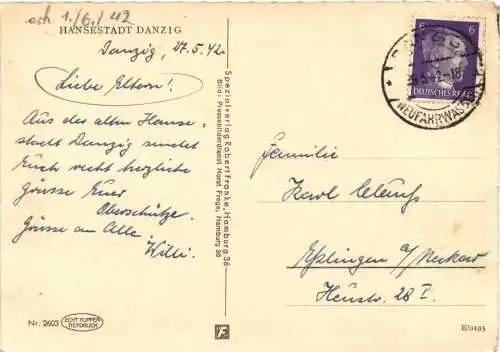 erh. 1./6./42
HANSESTADT DANZIG
Danzig, 27.5.42.
Liebe Eltern!
Aus der alten Hanse-
stadt Danzig sendet
Euch recht herzliche
Grüsse Euer
Oberschütze.
Grüsse an Alle.
Willi.
Nr. 2603
ECHT KUPFER-
TIEFDRUCK
Spezialverlag Robert Franke, Hamburg 36
Bild: Pressebilderdienst Horst Frege, Hamburg 36
F
6
DEUTSCHES REICH
DANZIG
NEUFAHRWASSER
Familie
Karl
Esslingen a/Neckar
Heustr. 28 I.
E/0195